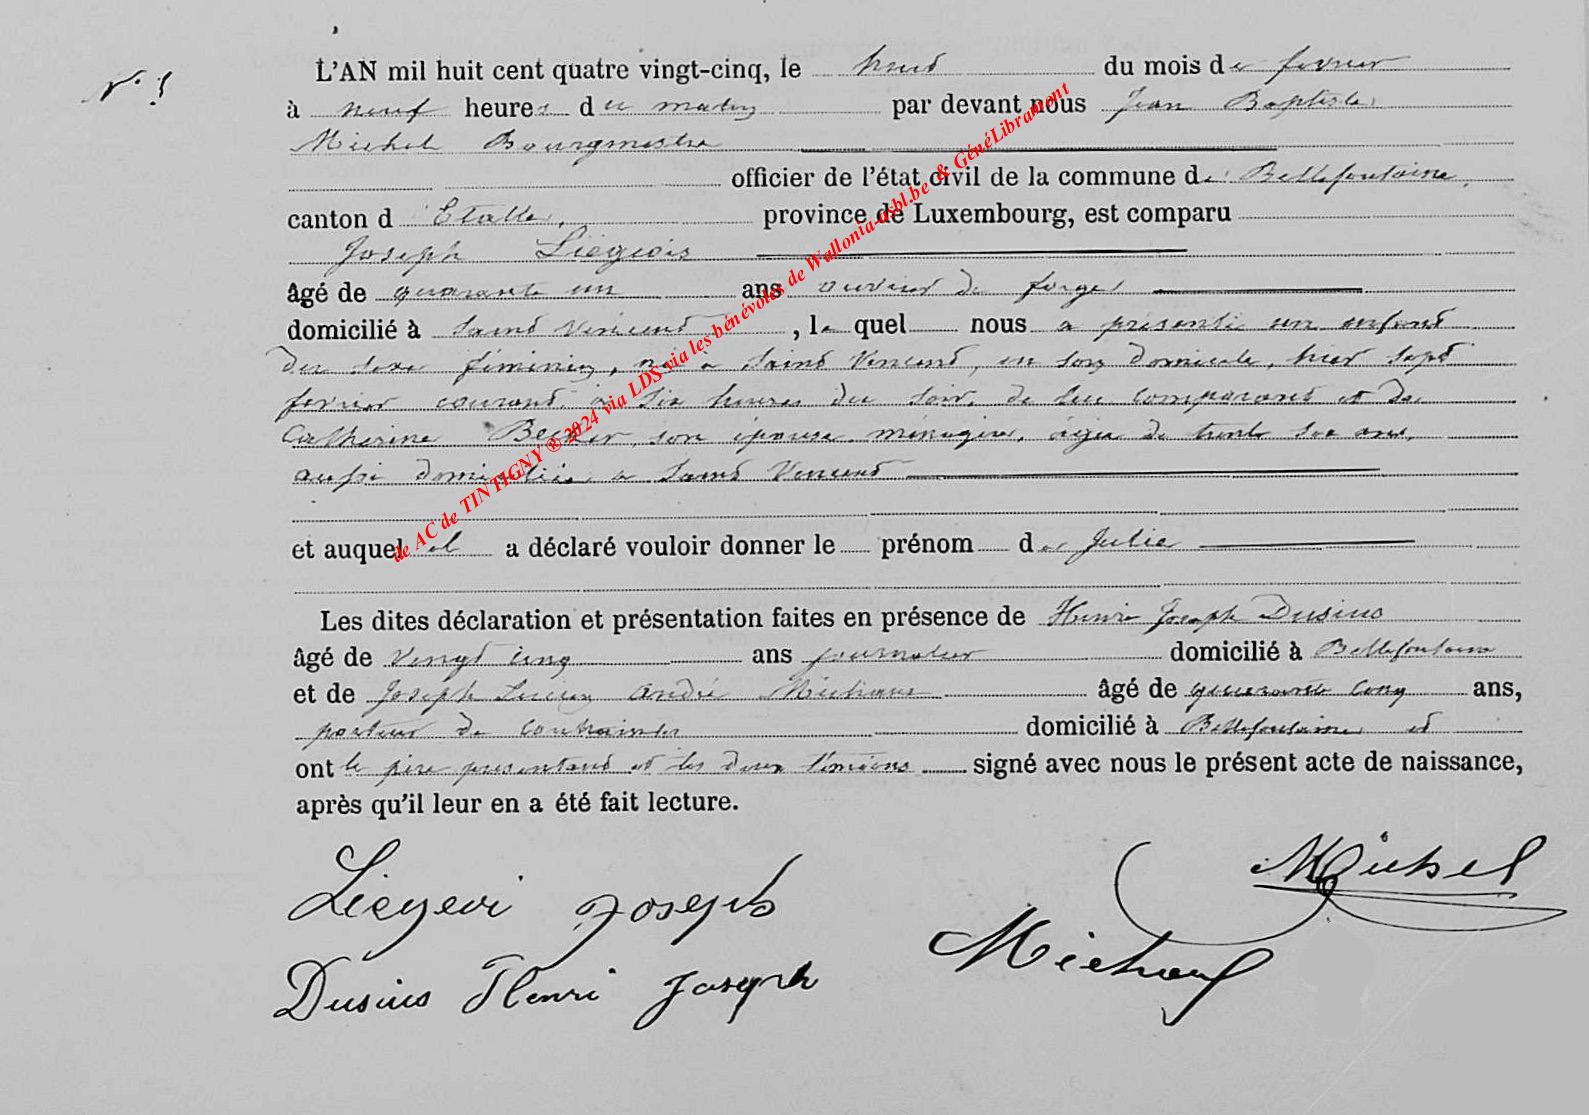 N° 5
L'AN mil huit cent quatre vingt-cinq, le huit du mois de fevrier
à neuf heures du matin par devant nous Jean Baptiste
Michel Bourgmestre
officier de l'état civil de la commune de Bellefontaine,
canton d'Etalle, province de Luxembourg, est comparu
Joseph Liégeois
âgé de quarante un ans ouvrier de forges
domicilié à Saint Vincent, le quel nous a présenté un enfant
du sexe féminin, né à Saint Vincent, en son domicile, hier sept
fevrier courant à six heures du soir, de lui comparant et de
Catherine Becker, son épouse, ménagère, agée de trente six ans,
aussi domiciliée à Saint Vincent
et auquel il a déclaré vouloir donner le prénom de Julie
Les dites déclaration et présentation faites en présence de Henri Joseph Dusius
âgé de vingt cinq ans journalier domicilié à Bellefontaine
et de Joseph Lucien André Michaux âgé de quarante cinq ans,
porteur de contraintes domicilié à Bellefontaine et
ont le père présentant et les deux témoins signé avec nous le présent acte de naissance,
après qu'il leur en a été fait lecture.
Michel
Liegeois Joseph
Michaux
Dusius Henri Joseph
de AC de TINTIGNY ® 2024 via LDS via les bénévoles de Wallonia-asbl.be & GénéLibramont